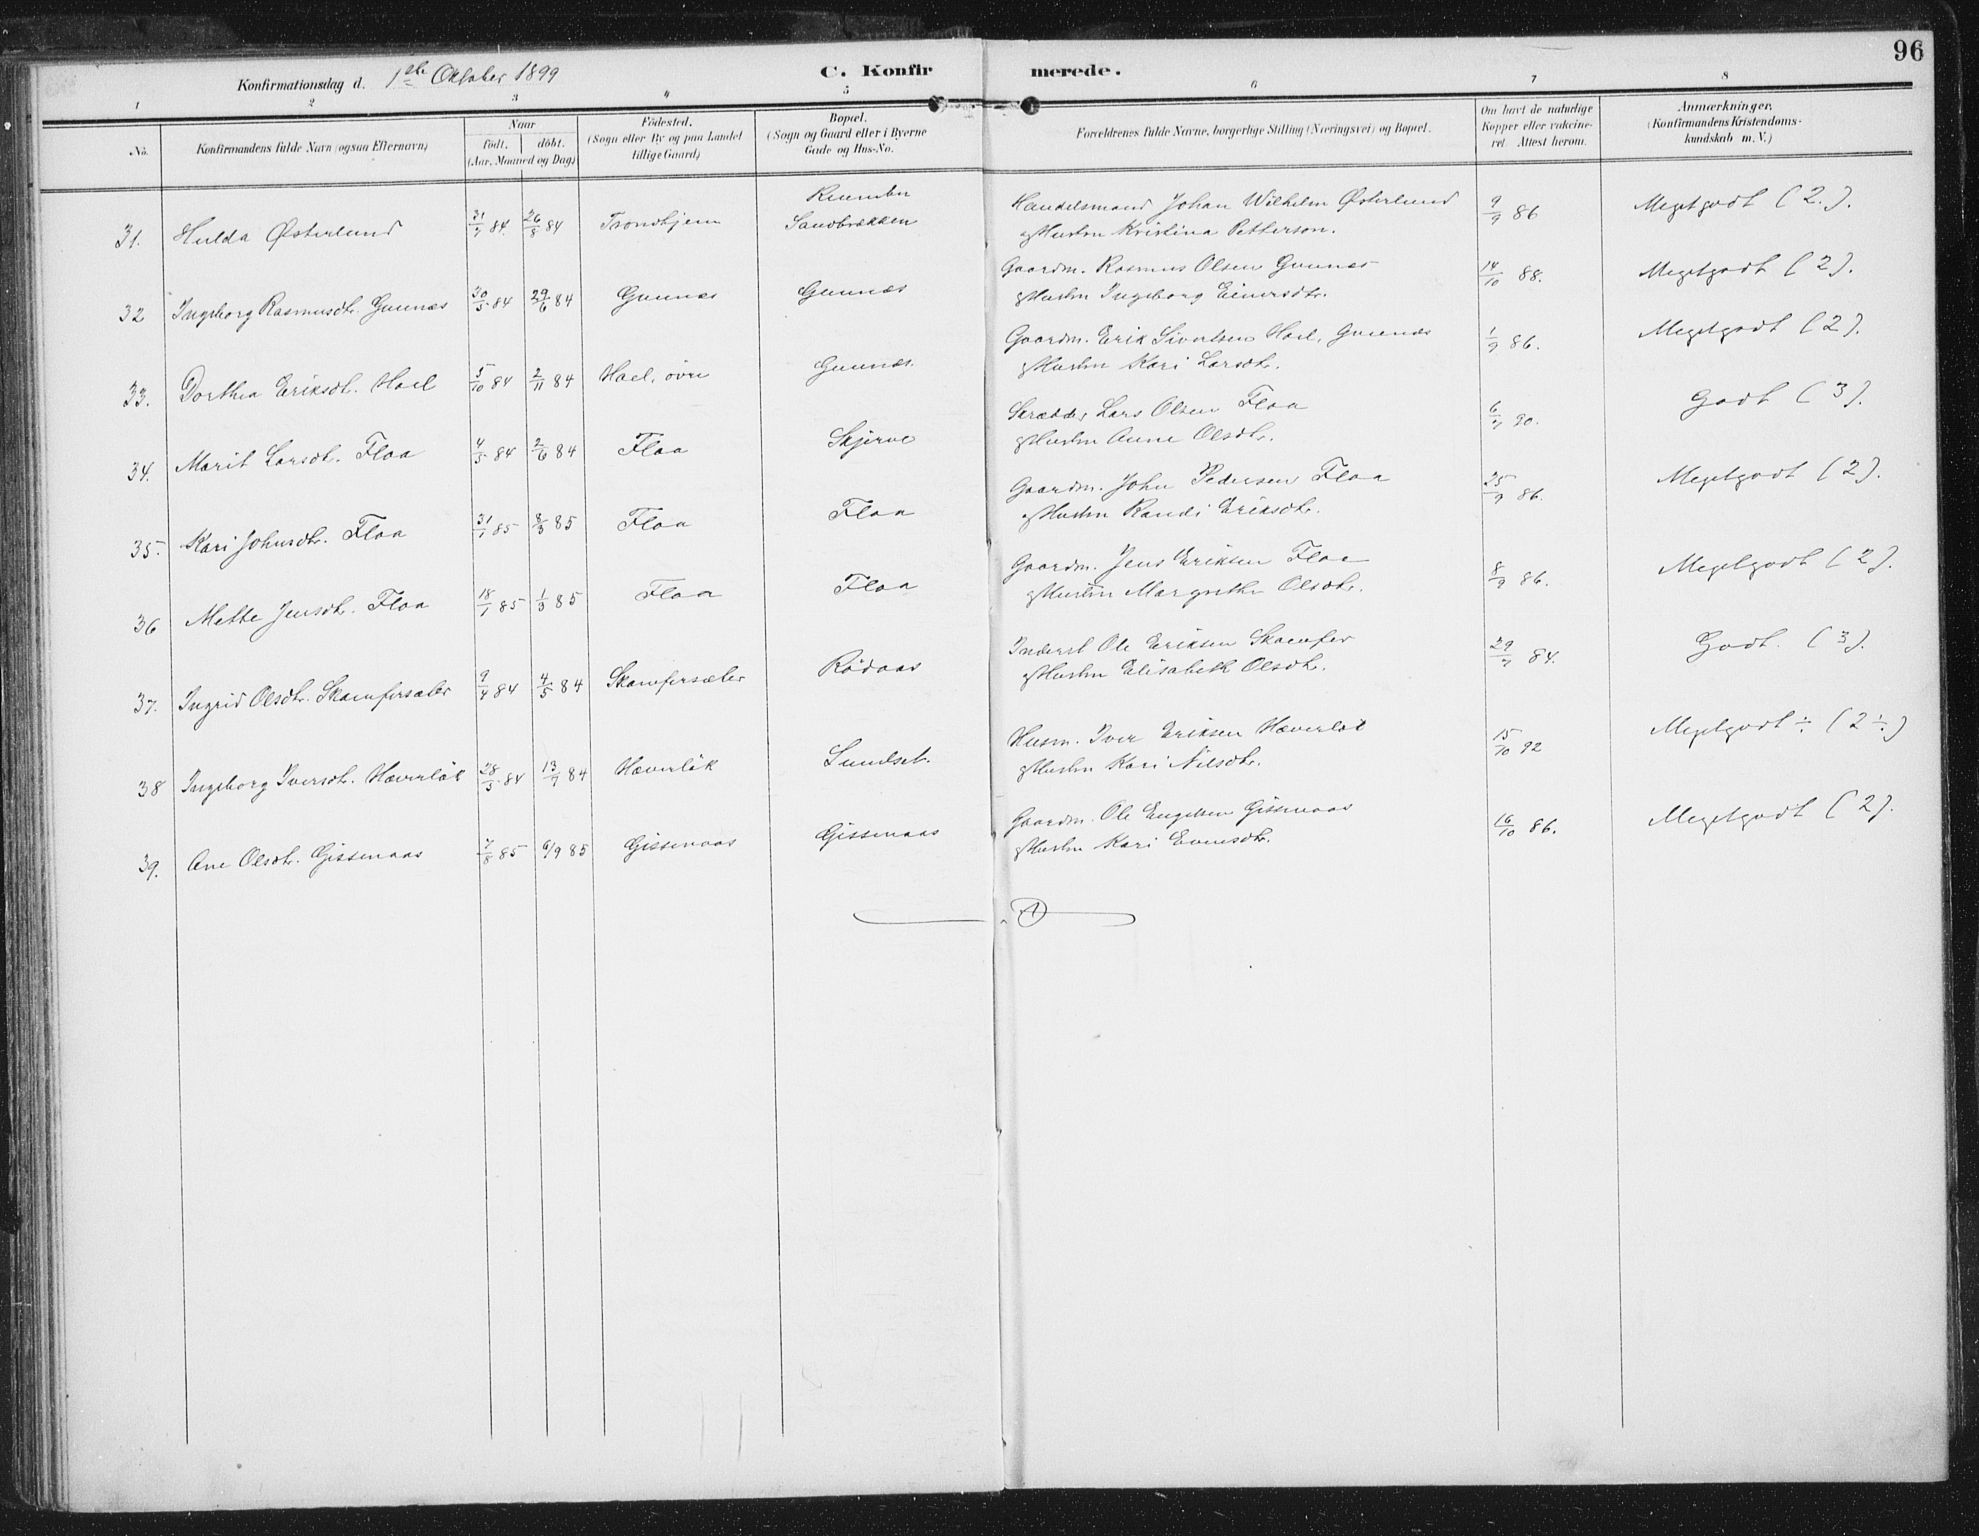 96
Konfirmationsdag d. 1ste Oktober 1899 C. Konfirmerede.
1 2 3 4 5 6 7 8
No. Konfirmandens fulde Navn (ogsaa Efternavn) Naar födt. döbt. (Aar, Maaned og Dag) Födested. (Sogn eller By og paa Landet tillige Gaard) Bopæl. (Sogn og Gaard eller i Byerne Gade og Hus-No. Forældrenes fulde Navne, borgerlige Stilling (Næringsvei) og Bopæl. Om havt de naturlige Kopper eller vakcineret. Attest herom. Anmærkninger. (Konfirmandens Kristendomskundskab m. V.)
31. Hulda Østerlund 31/7 84. 26/8 84 Trondhjem Sandbrækken Handelsmand Johan Wilhelm Østerlund 9/9 86 Megetgodt (2.).
og Hustru Kristina Petterson.
32 Ingeborg Rasmusdtr. Gunnæs 30/5 84 29/6 84 Gunnæs Gunnæs Gaardm. Rasmus Olsen Gunnæs 14/10 88. Megetgodt (2).
og Hustru Ingeborg Einersdtr.
33. Dorthea Eriksdt. Hoel 5/10 84 2/11 84 Hoel, øvre Gunnæs. Gaardm. Erik Sivertsen Hoel, Gunnæs 1/9 86. Megetgodt (2).
og Hustru Kari Larsdtr.
34. Marit Larsdt. Floa 4/5 84 2/6 84 Floa Skjerve Skrædder Lars Olsen Floa 6/7 90. Godt (3).
og Hustru Anne Olsdtr.
35. Kari Johnsdtr. Floa 31/1 85 8/3 85 Floa Floa Gaardm. John Pedersen Floa 25/9 86. Megetgodt (2).
og Hustru Randi Eriksdtr.
36 Mette Jensdt. Floa 18/1 85 1/3 85 Floa Floa Gaardm. Jens Eriksen Floa 8/9 86. Megetgodt (2).
og Hustru Margrethe Olsdtr.
37. Ingrid Olsdtr. Skamfersæter 9/4 84 4/5 84 Skamfersæter Rödaas Inderst Ole Eriksen Skamfer 29/7 84. Godt. (3).
og Hustru Elisabeth Olsdtr.
38 Ingeborg Iversdt. Hæverlök 28/5 84 13/7 84 Hæverlök Sundset. Husm. Iver Eriksen Hæverlök 15/10 92 Megetgodt ÷ (2 ÷)
og Hustru Kari Nilsdtr.
39. Ane Olsdt. Gissenaas 7/8 85 6/9 85 Gissenaas Gissenaas Gaardm. Ole Engelsen Gissenaas 16/10 86. Megetgodt (2).
og Hustru Kari Evensdtr.